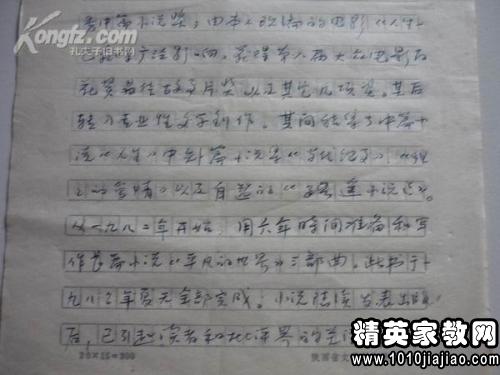 Kongfz.com
孔夫子旧书网
秀中篇小说奖；由本人改编的电影《人生》
产生广泛影响，获得第八届大众电影百
花奖最佳故事片奖以及其它几项奖。其后
转入专业性文学创作。其间结集了中篇小
说《人生》中短篇小说集《当代纪事》《姐
姐的爱情》以及自选的《路遥小说选》。
从一九八二年开始，用六年时间准备和写
作长篇小说《平凡的世界》三部曲。此书于一
九八八年夏天全部完成。小说陆续发表出版
后，已引起读者和批评界的关注
20×15=300
陕西省
精英家教网
www.1010jiajiao.com